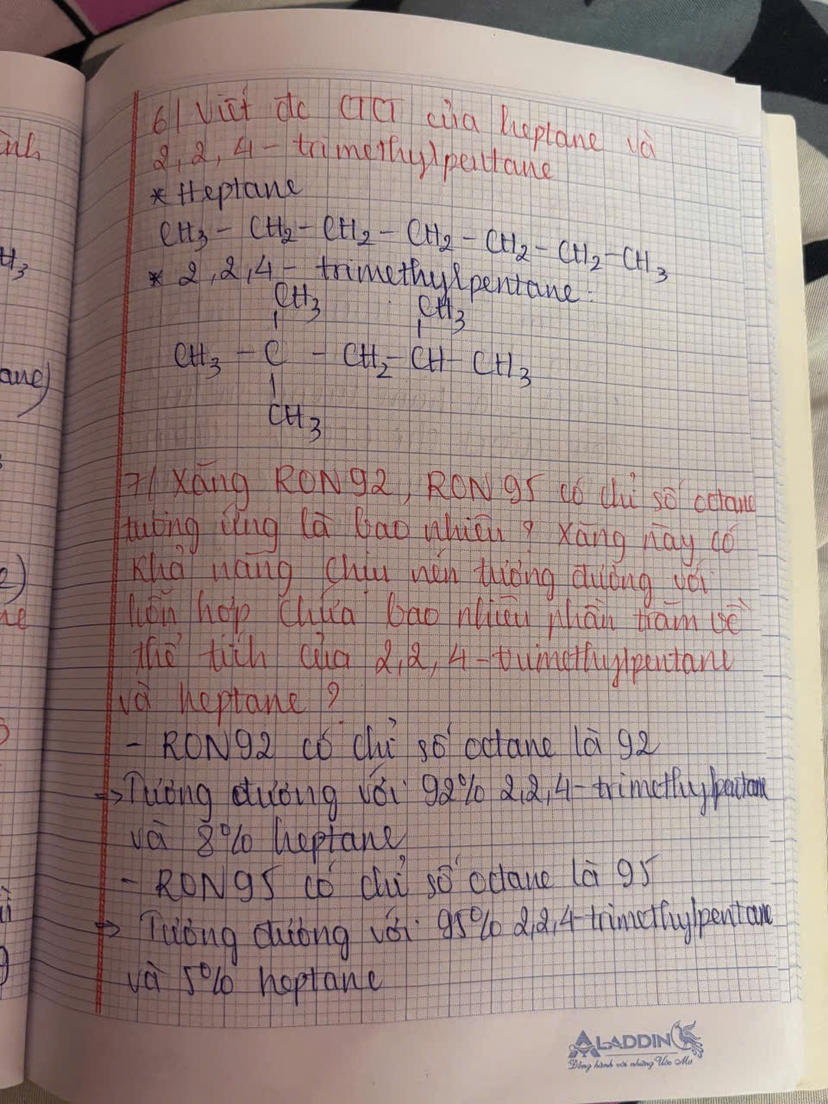 ình
H₃
ane)
6/ Viết đc CTCT của heptane và
2,2,4-trimethylpentane
* Heptane
CH₃ - CH₂ - CH₂ - CH₂ - CH₂ - CH₂ - CH₃
* 2,2,4 - trimethylpentane:
CH₃ CH₃
CH₃ - C - CH₂ - CH - CH₃
CH₃
7/ Xăng RON92, RON 95 có chỉ số octane
tương ứng là bao nhiêu? Xăng này có
khả năng chịu nén tương đương với
hỗn hợp chứa bao nhiêu phần trăm về
thể tích của 2,2,4-trimethylpentane
và heptane?
- RON92 có chỉ số octane là 92
→ Tương đương với 92% 2,2,4-trimethylpentane
và 8% heptane
- RON95 có chỉ số octane là 95
→ Tương đương với 95% 2,2,4-trimethylpentane
và 5% heptane
ALADDIN
Đồng hành với những Ước Mơ